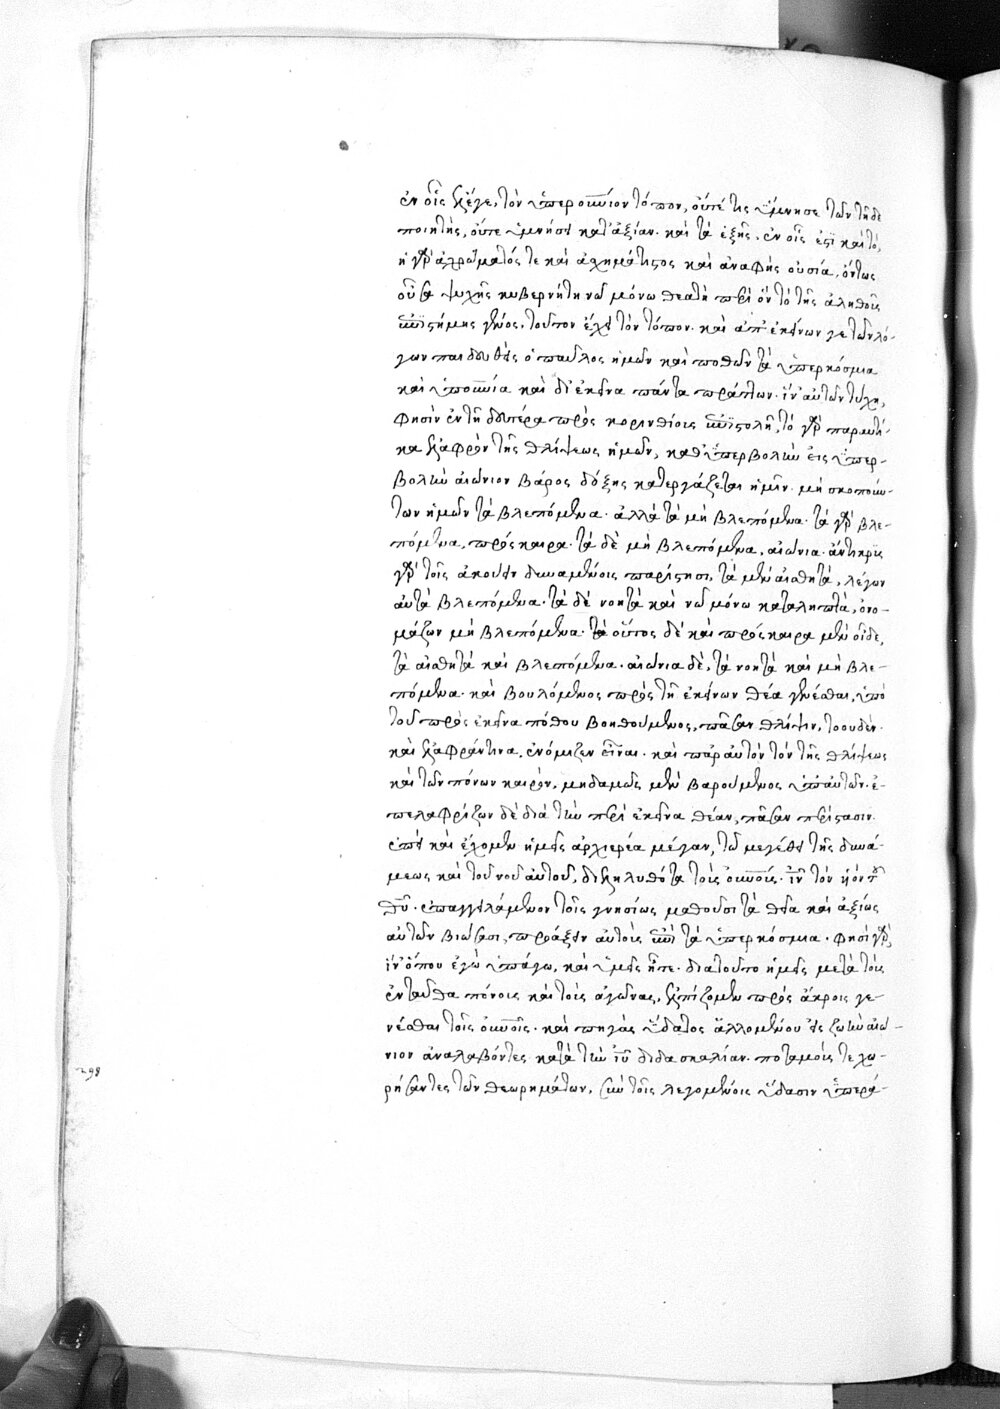 ἐν οἷς λέγει, τὸν ὑπερουράνιον τόπον, οὔτέ τις ὕμνησε τῶν τῆδε
ποιητὴς, οὔτε ὑμνήσει κατ' ἀξίαν. καὶ τὰ ἑξῆς. ἐν οἷς ἐστὶ καὶ τὸ,
ἡ γὰρ ἀχρώματός τε καὶ ἀσχημάτιστος καὶ ἀναφὴς οὐσία, ὄντως
οὖσα ψυχῆς κυβερνήτη νῶ μόνω θεατὴ περὶ ὃν τὸ τῆς ἀληθοῦς
ἐπιστήμης γένος, τοῦτον ἔχει τὸν τόπον. καὶ ἀπ' ἐκείνων γε τῶν λό-
γων παιδευθεὶς ὁ παῦλος ἡμῶν καὶ ποθῶν τὰ ὑπερκόσμια
καὶ ὑπουράνια καὶ δι' ἐκεῖνα πάντα πράττων. ἵν' αὐτῶν τύχη,
φησὶν ἐν τῆ δευτέρα πρὸς κορινθίοις ἐπιστολῆ, τὸ γὰρ παραυτί-
κα ἐλαφρὸν τῆς θλίψεως ἡμῶν, καθ' ὑπερβολὴν εἰς ὑπερ-
βολὴν αἰώνιον βάρος δόξης κατεργάζεται ἡμῖν. μὴ σκοπούν-
των ἡμῶν τὰ βλεπόμενα. ἀλλὰ τὰ μὴ βλεπόμενα. τὰ γὰρ βλε-
πόμενα, πρόσκαιρα. τὰ δὲ μὴ βλεπόμενα, αἰώνια. ἄντικρυς
γὰρ τοῖς ἀκούειν δυναμένοις παρίστησι, τὰ μὲν αἰσθητὰ, λέγων
αὐτὰ βλεπόμενα. τὰ δὲ νοητὰ καὶ νῶ μόνω καταληπτὰ, ὀνο-
μάζων μὴ βλεπόμενα. τὰ οὗτος δὲ καὶ πρόσκαιρα μὲν οἶδε,
τὰ αἰσθητὰ καὶ βλεπόμενα. αἰώνια δὲ, τὰ νοητὰ καὶ μὴ βλε-
πόμενα. καὶ βουλόμενος πρὸς τῆ ἐκείνων θέα γενέσθαι, ὑπὸ
τοῦ πρὸς ἐκεῖνα πόθου βοηθούμενος, πᾶσαν θλίψιν, τὸ οὐδὲν.
καὶ ἐλαφράν τινα, ἐνόμιζεν εἶναι. καὶ παρ' αὐτὸν τὸν τῆς θλίψεως
καὶ τῶν πόνων καιρὸν, μηδαμῶς μὲν βαρούμενος ὑπ' αὐτῶν. ἐ-
πελαφρίζων δὲ διὰ τὴν περὶ ἐκεῖνα θέαν, πᾶσαν περίστασιν.
ἐπεὶ καὶ ἔχομεν ἡμεῖς ἀρχιερέα μέγαν, τῶ μεγέθει τῆς δυνά-
μεως καὶ τοῦ νοῦ αὐτοῦ, διεληλυθότα τοὺς οὐρανούς. ἰν τὸν υἱὸν τοῦ
θῦ. ἐπαγγειλάμενον τοῖς γνησίως μαθοῦσι τὰ θεῖα καὶ ἀξίως
αὐτῶν βιώσασι, προάξειν αὐτοὺς ἐπὶ τὰ ὑπερκόσμια. φησὶ γὰρ,
ἵν' ὅπου ἐγὼ ὑπάγω, καὶ ὑμεῖς ἦτε. διὰ τοῦτο ἡμεῖς μετὰ τοὺς
ἐνταῦθα πόνους καὶ τοὺς ἀγῶνας, ἐλπίζομεν πρὸς ἄκροις γε-
νέσθαι τοῖς οὐρανοῖς. καὶ πηγὰς ὕδατος ἁλλομένου εἰς ζωὴν αἰώ-
νιον ἀναλαβόντες κατὰ τὴν ἰῦ διδασκαλίαν. ποταμούς τε χω-
ρήσαντες τῶν θεωρημάτων, σὺν τοῖς λεγομένοις ὕδασιν ὑπερά-
298